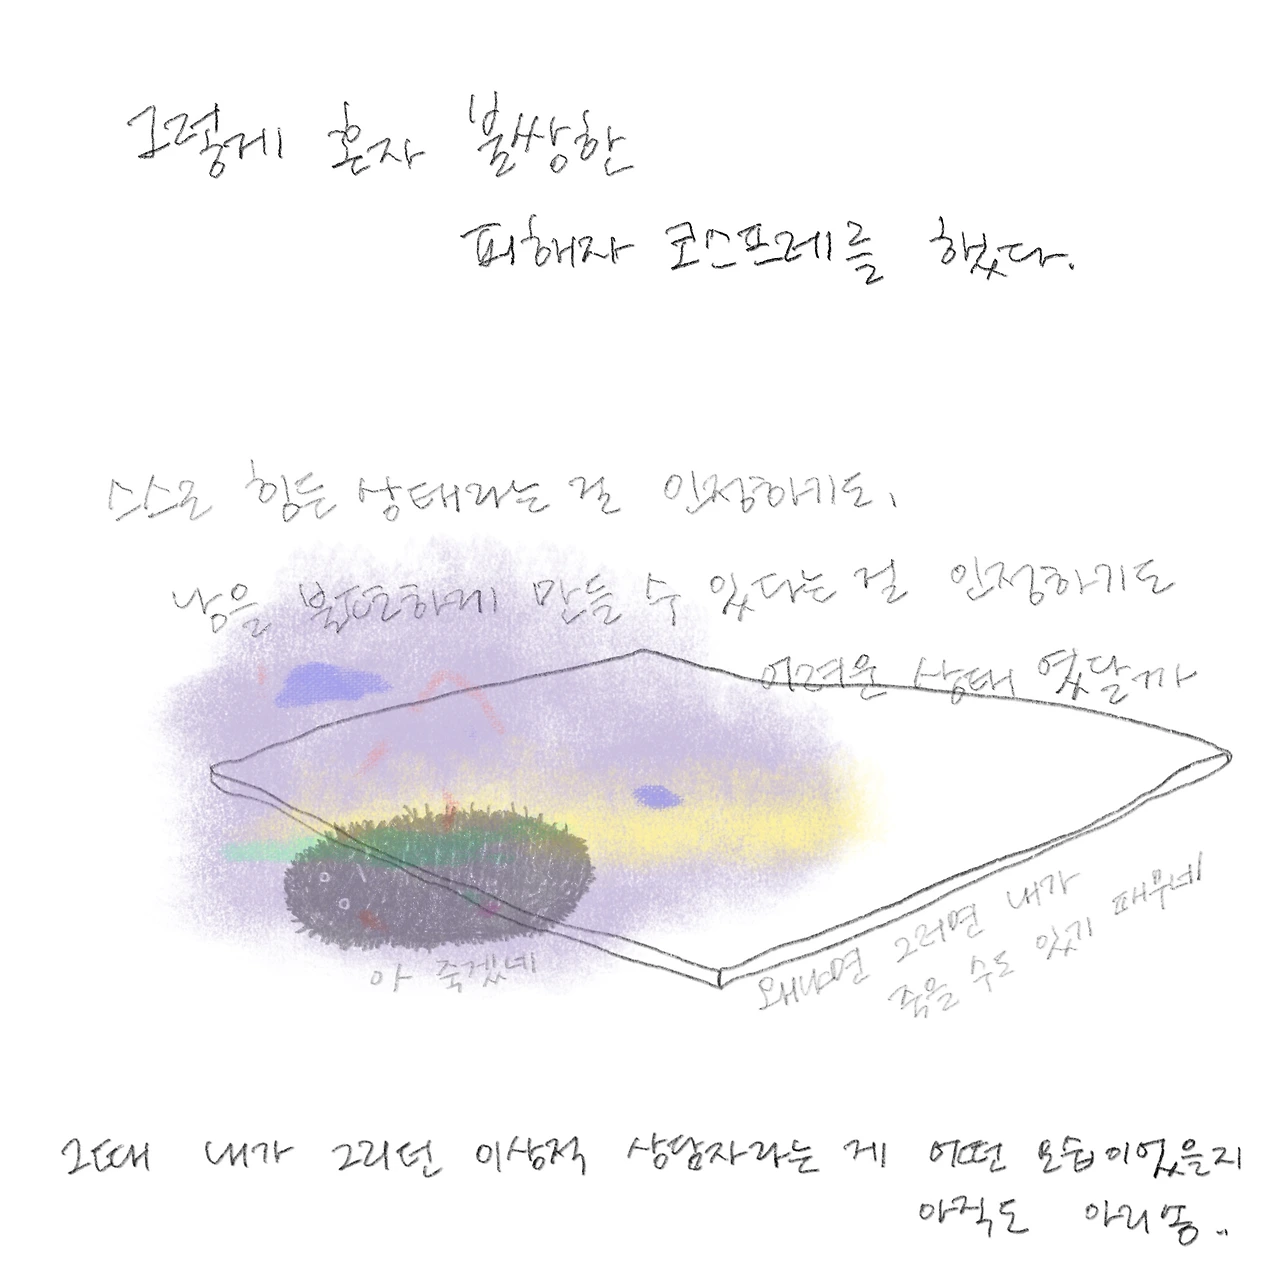 그렇게 혼자 불쌍한
피해자 코스프레를 했다.
스스로 힘든 상태라는 걸 인정하기도,
남을 불편하게 만들 수 있다는 걸 인정하기도
어려운 상태였달까
아 죽겠네
왜냐면 그러면 내가
죽을 수도 있기 때무네
그때 내가 그리던 이상적 상담자라는 게 어떤 모습이었을지
아직도 아리송..